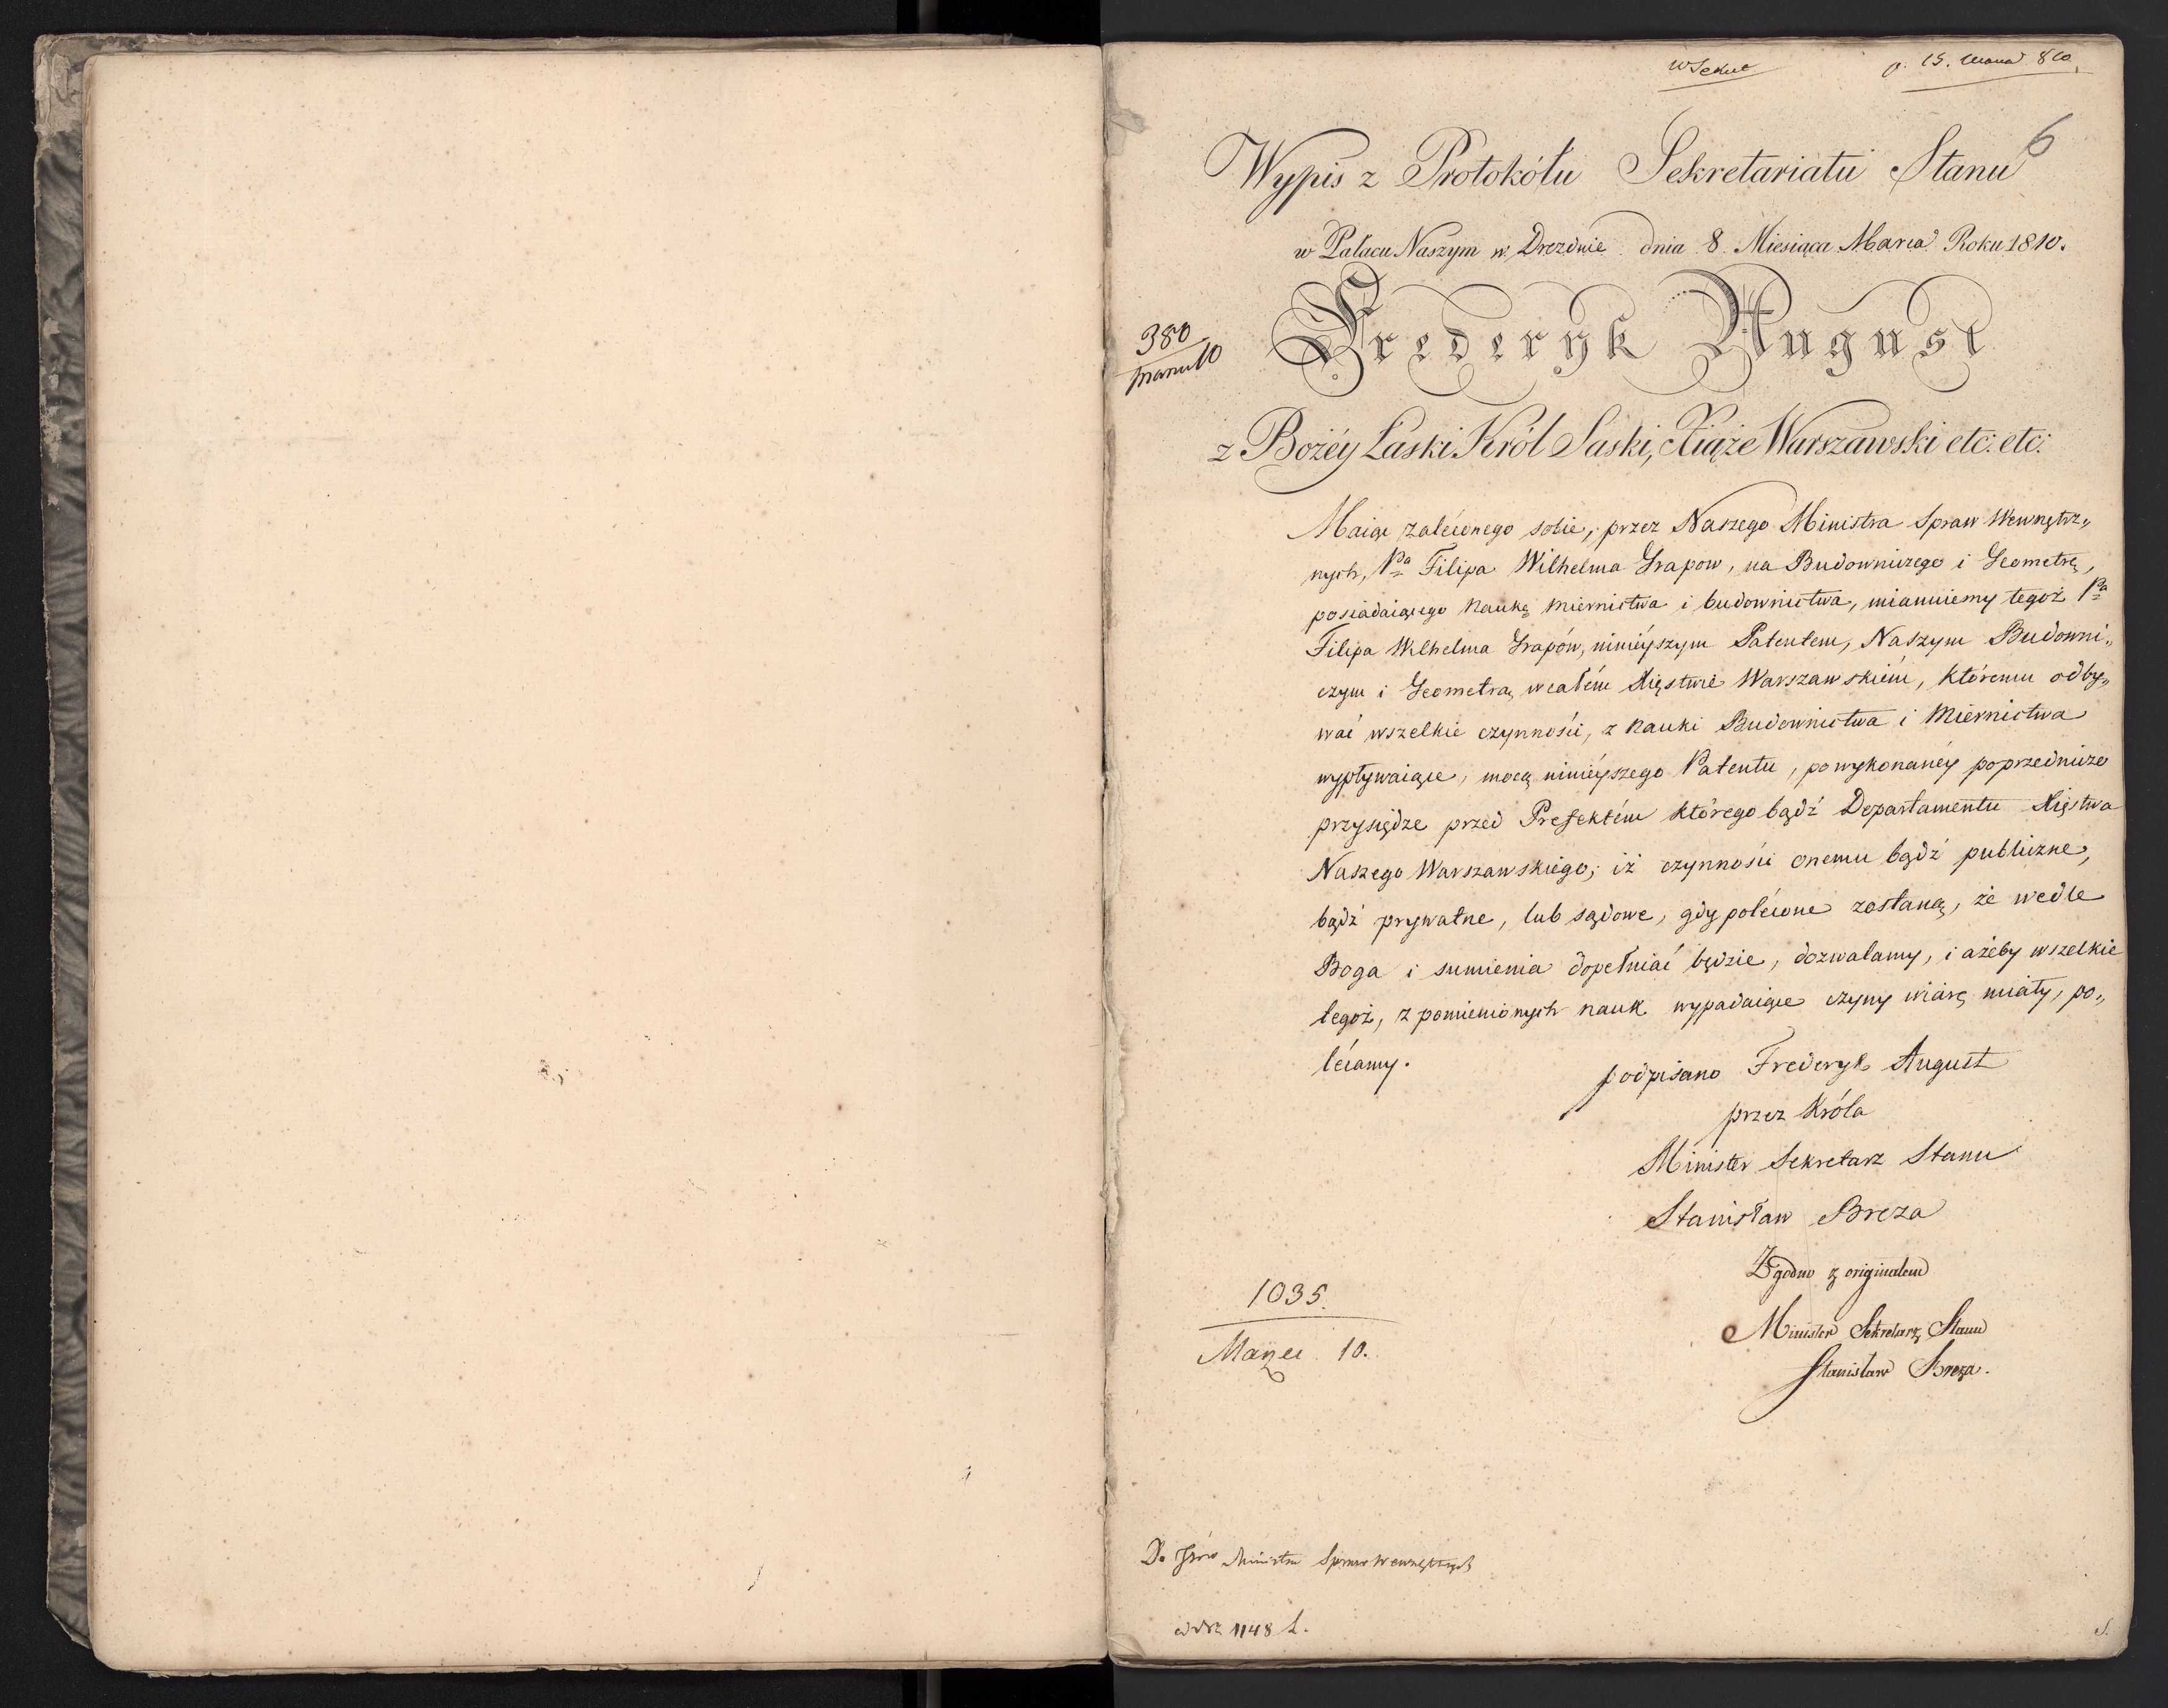 p. 15. Marca 810.
6
Wypis z Protokółu Sekretariatu Stanu
w Pałacu Naszym w Dreznie dnia 8. Miesiąca Marca Roku 1810.
380
Fryderyk August
z Bożéy Łaski Król Saski, Xiąże Warszawski etc: etc:
Maiąc zaleconego sobie, przez Naszego Ministra Spraw Wewnętrz„
nych, Pa Filipa Wilhelma Grapow, na Budowniczego i Geometrę,
posiadaiącego naukę miernictwa i budownictwa, mianuiemy tegoż Pa
Filipa Wilhelma Grapów, ninieyszym Patentem, Naszym Budowni„
czym i Geometrą, w całém Xięstwie Warszawskiém, któremu odby„
wać wszelkie czynności, z nauki Budownictwa i Miernictwa
wypływaiące, mocą ninieyszego Patentu, po wykonanéy poprzedniczo
przysiędze przed Prefektem którego bądź Departamentu Xięstwa
Naszego Warszawskiego; iż czynności onemu bądź publiczne,
bądź prywatne, lub sądowe, gdy polécone zostaną, że wedle
Boga i sumienia dopełniać będzie, dozwalamy, i ażeby wszelkie
tegoż, z pomienionych nauk wypadaiące czyny wiarę miały, po„
lécamy.
podpisano Frederyk August
przez Króla
Minister Sekretarz Stanu
Stanisław Breza
Zgodno z originałem
Minister Sekretarz Stanu
Stanisław Breza.
1035.
Marzec 10.
Do Ministra Spraw Wewnętrznych
1148